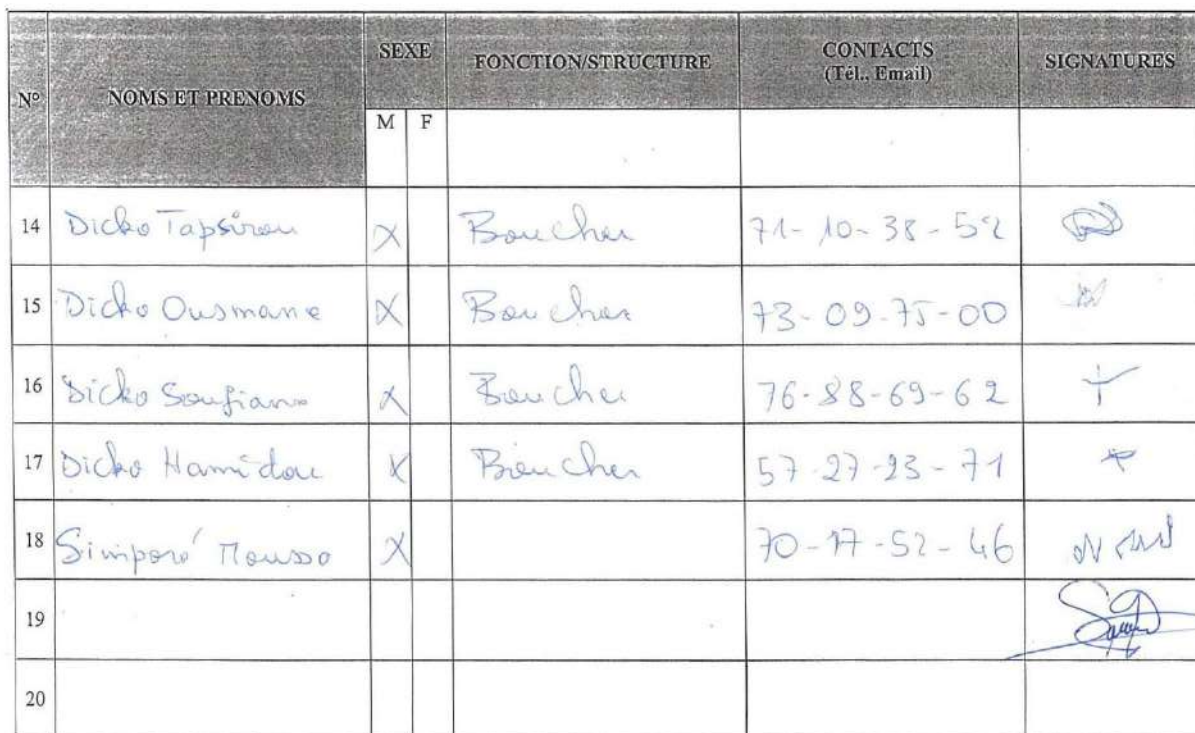 N° NOMS ET PRENOMS SEXE FONCTION/STRUCTURE CONTACTS (Tél., Email) SIGNATURES
M F
14 Dicko Tapsirou X Boucher 71-10-38-52
15 Dicko Ousmane X Boucher 73-09-75-00
16 Dicko Soufiane X Boucher 76-88-69-62
17 Dicko Hamidou X Boucher 57-27-23-71
18 Simporé Moussa X 70-17-52-46
19
20